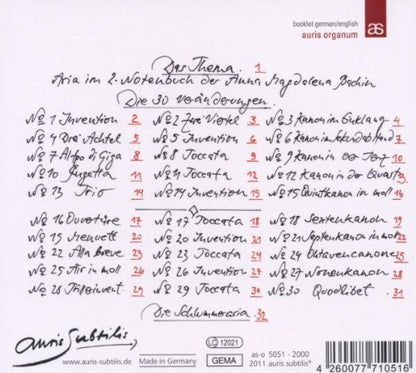 booklet german/english
auris organum
as
Das Thema. 1
Aria im 2. Notenbuch der Anna Magdalena Bachin
Die 30 Veränderungen.
No 1 Invention 2 No 2 Zwei Viertel 3 No 3 Kanon im Einklang 4
No 4 Drei Achtel 5 No 5 Invention 6 No 6 Kanon im Sekundabstand 7
No 7 Al tempo di Giga 8 No 8 Toccata 9 No 9 Kanon in der Terz 10
No 10 Fugetta 11 No 11 Toccata 12 No 12 Kanon der Quart 13
No 13 Trio 14 No 14 Invention 15 No 15 Quintkanon in moll 16
No 16 Ouvertüre 17 No 17 Toccata 18 No 18 Sextenkanon 19
No 19 Menuett 20 No 20 Invention 21 No 21 Septenkanon in moll 22
No 22 Alla breve 23 No 23 Toccata 24 No 24 Oktavencanon 25
No 25 Air in moll 26 No 26 Invention 27 No 27 Nonenkanon 28
No 28 29 No 29 Toccata 30 No 30 Quodlibet 31
Die Schlummeraria 32
auris subtilis
www.auris-subtilis.de
Made in Germany
LC 12021
GEMA
as-o 5051 - 2000
2011 auris subtilis
4 260077 710516